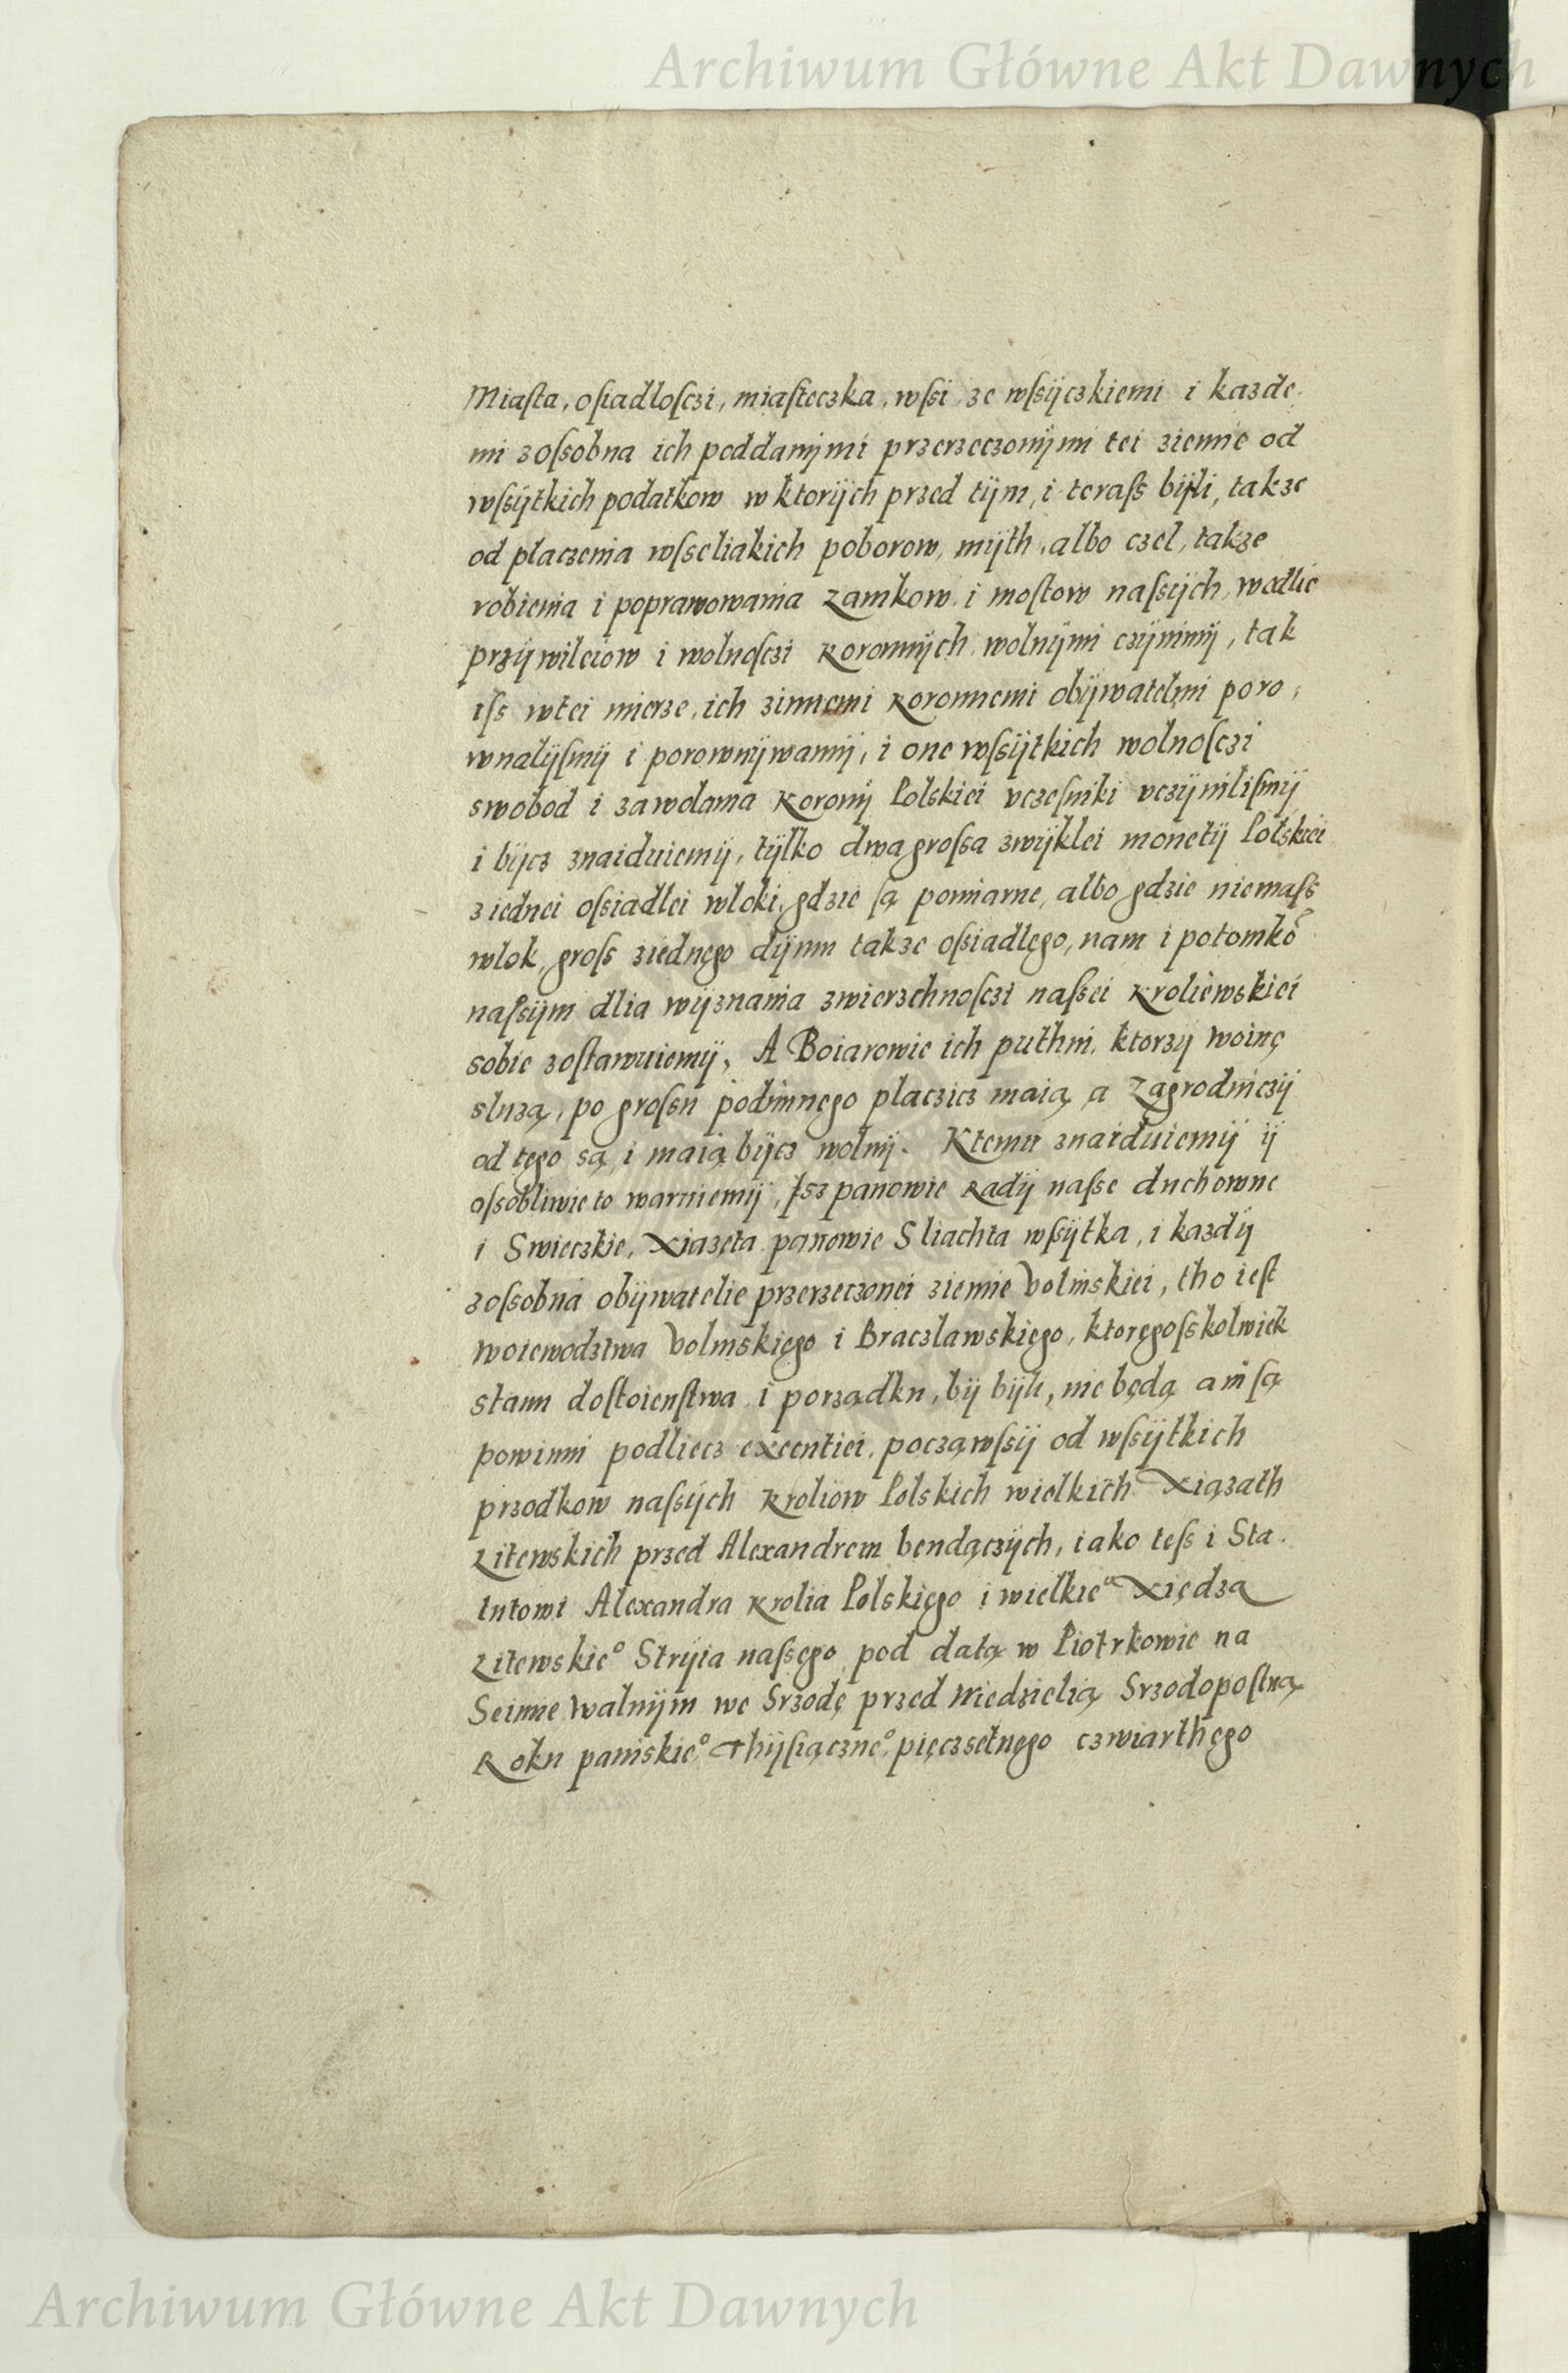 Archiwum Główne Akt Dawnych
Miaſta, oſiadloſczi, miaſteczka, wſsi, ze wſsÿczkiemi i kazde,
mi zoſsobna ich poddanÿmi przerzeczonÿmi tei ziemie od
wſsÿtkich podatkow w ktorÿch przed tÿm, i teraſs bÿli, takze
od placzenia wſseliakich poborow, mÿth, albo czel, takze
robienia i poprawowania zamkow, i moſtow naſsÿch, wedlie
przÿwileiow i wolnoſczi Koronnÿch wolnÿmi czÿnimÿ, tak
iſs wtei mierze, ich zinnemi Koronnemi obÿwatelmi poro,
wnalÿſmÿ i porownÿwamÿ, i one wſsÿtkich wolnoſczi
swobod i zawolania Koronÿ Polskiei vczeſniki vczÿniliſmÿ
i bÿcz znaiduiemÿ, tÿlko dwa groſsa zwÿklei monetÿ Polskiei
z iednei oſsiadlei wloki, gdzie ſą pomiarne, albo gdzie niemaſs
wlok, groſs ziednęgo dÿmu takze oſsiadlęgo, nam i potomkõ
naſsÿm dlia wÿznania zwierzchnoſczi naſsei Kroliewskiei
sobie zoſtawuiemÿ, A Boiarowie ich puthni, ktorzÿ woinę
sluzą, po groſsu podimnęgo placzicz maią, a Zagrodniczÿ
od tęgo są, i maią bÿcz wolnÿ. Ktemu znaiduiemÿ ÿ
oſsobliwie to waruiemÿ, Isz panowie Radÿ naſse duchowne
i Swieczkie, Xiazęta panowie Sliachta wſsÿtka, i kazdÿ
zoſsobna obÿwatelie przerzeczonei ziemie Volinskiei, tho ieſt
woiewodztwa Volinskięgo i Braczlawskięgo, ktoręgoſskolwiek
stanu doſtoienſtwa i porządku, bÿ bÿli, nie będą ani ſą
powinni podliecz exceutiei, począwſsÿ od wſsÿtkich
przodkow naſsÿch Kroliow Polskich wielkich Xiązath
Litewskich przed Alexandrem bendączÿch, iako teſs i Sta.
tutowi Alexandra Krolia Polskięgo i wielkie° Xiędza
Litewskie° Strÿia naſsęgo, pod datą w Piotrkowie na
Seimie walnÿm we Srzodę przed Niedzielią Srzodopoſtną
Roku panskie° Thÿſiączne° pięczsetnęgo czwiarthęgo
Archiwum Główne Akt Dawnych